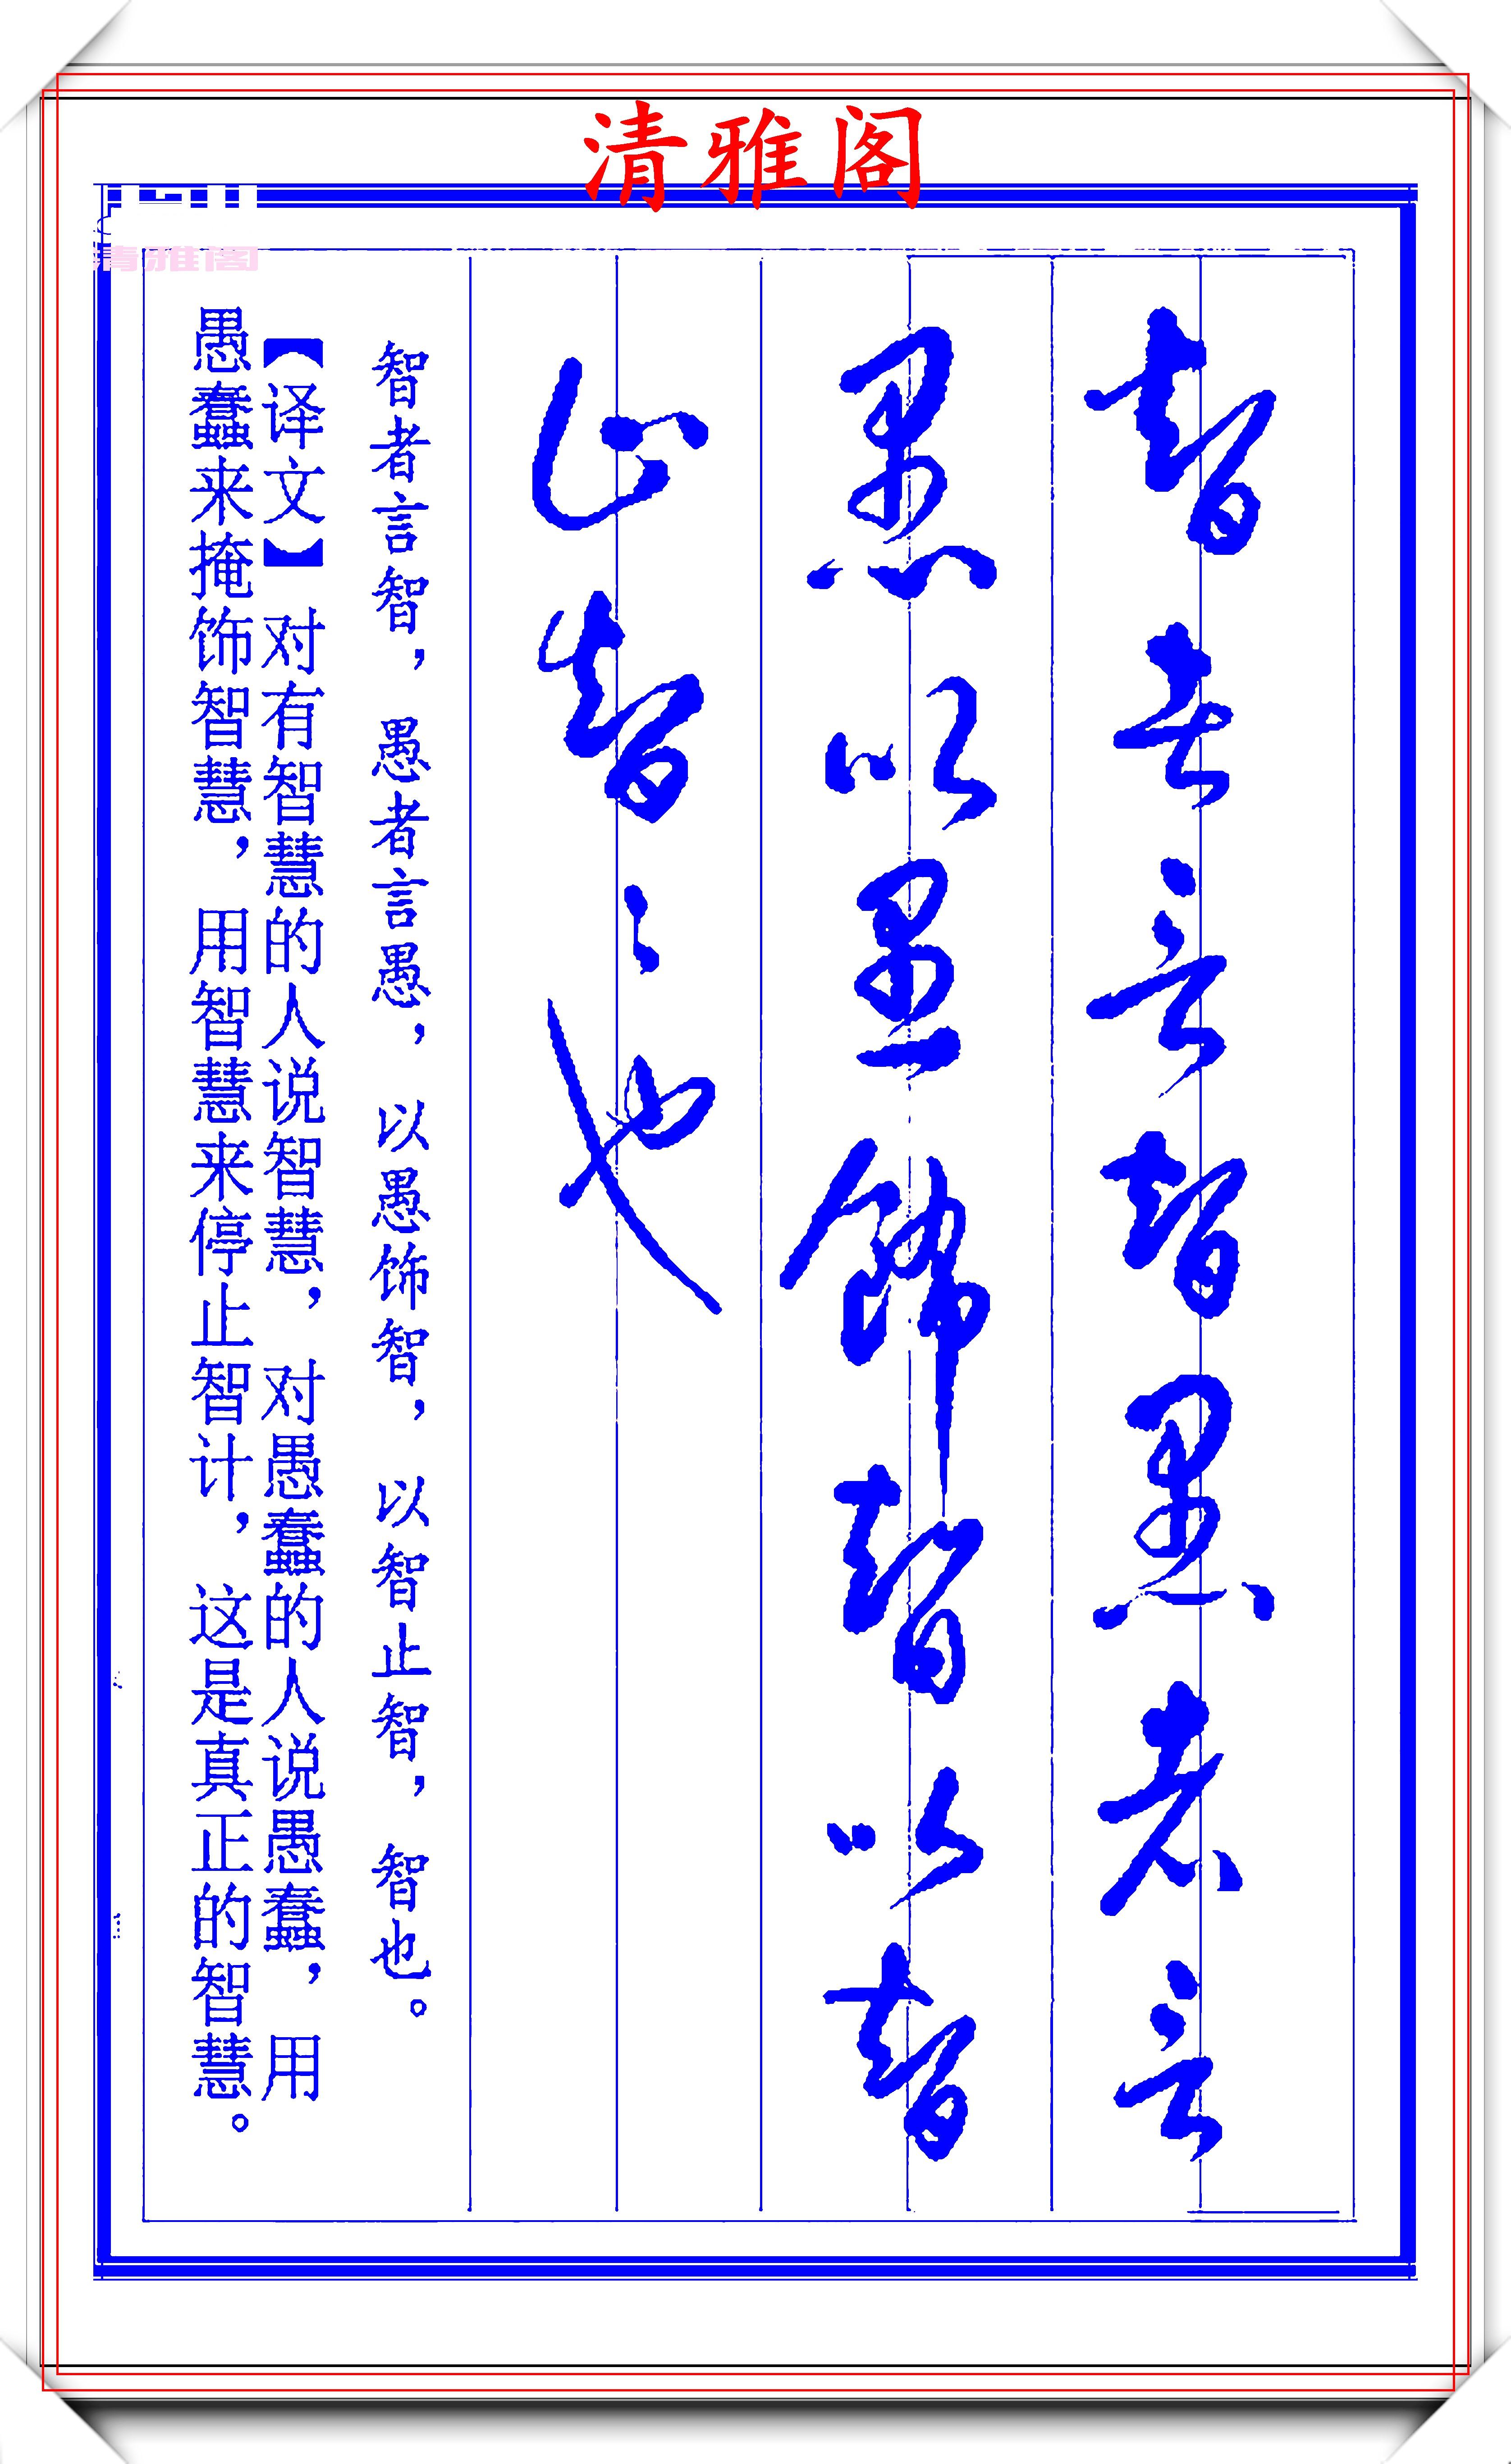 清雅阁
清雅阁
智者言智愚者言
愚以愚飾智以智
止智〻也
智者言智，愚者言愚，以愚饰智，以智止智，智也。
【译文】对有智慧的人说智慧，对愚蠢的人说愚蠢，用
愚蠢来掩饰智慧，用智慧来停止智计，这是真正的智慧。